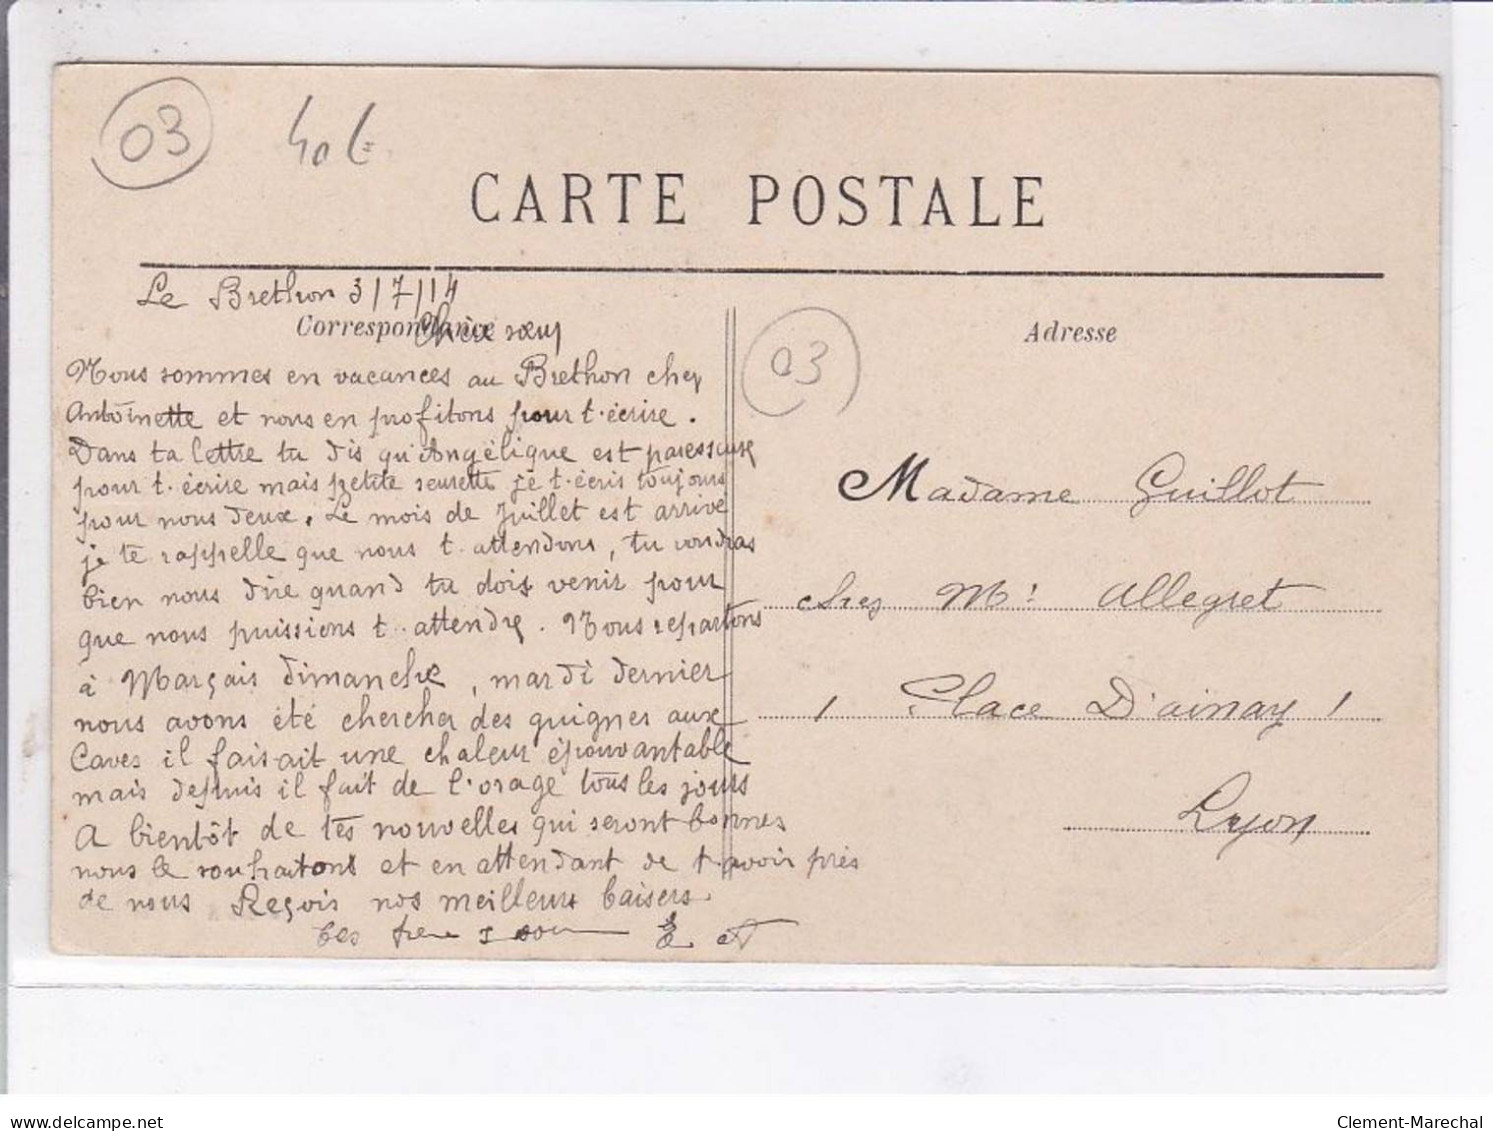 03
40 €
CARTE POSTALE
Le Brethon 3/7/14
Correspondance
Chère sœur
Nous sommes en vacances au Brethon chez
Antoinette et nous en profitons pour t'écrire.
Dans ta lettre tu dis qu'Angélique est paresseuse
pour t'écrire mais petite seurette je t'écris toujours
pour nous deux. Le mois de Juillet est arrivé
je te rappelle que nous t'attendons, tu voudras
bien nous dire quand tu dois venir pour
que nous puissions t'attendre. Nous repartons
à Marçais dimanche, mardi dernier
nous avons été chercher des guignes aux
Caves il faisait une chaleur épouvantable
mais depuis il fait de l'orage tous les jours
A bientôt de tes nouvelles qui seront bonnes
nous le souhaitons et en attendant de t'avoir près
de nous Reçois nos meilleurs baisers
tes frère & sœur E A
Adresse
03
Madame Guillot
chez Mr Allegret
1 Place D'ainay 1
Lyon
delcampe.net
Clement-Marechal